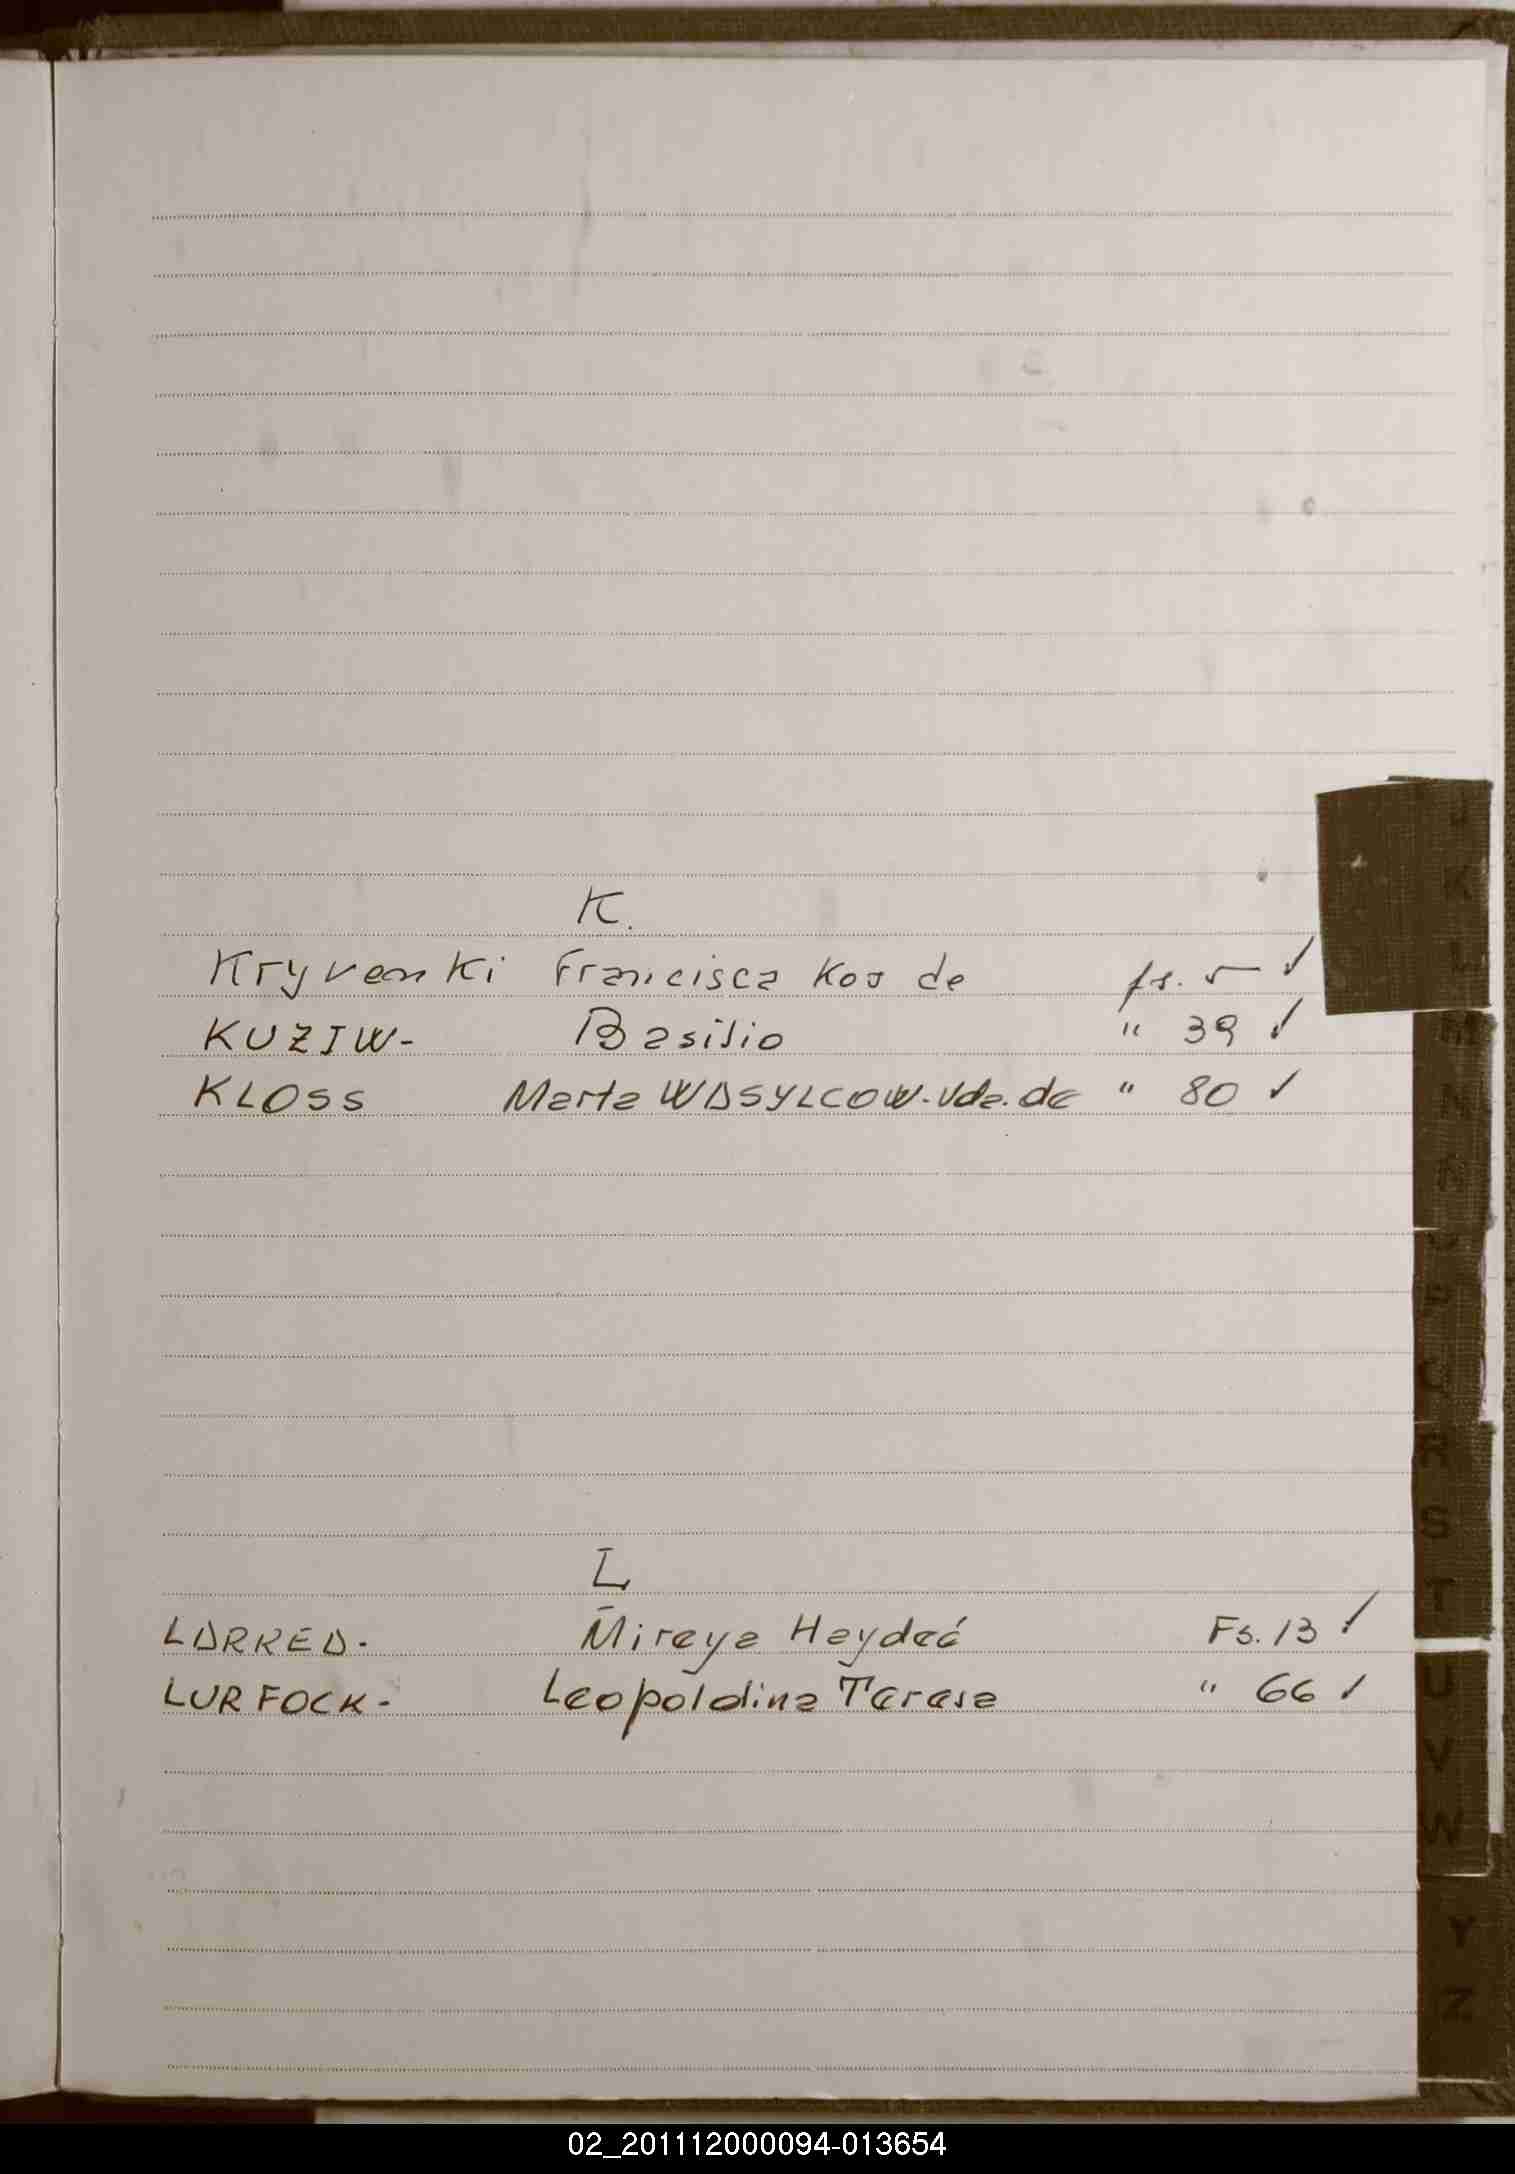 K.
Kryvenki Francisca Kos de fs. 5 ✓
KUZIW- Basilio " 39 ✓
KLOSS Marta WASYLCOW. Vda. de " 80 ✓
L
LARREA- Mireya Haydeé Fs. 13 ✓
LURFOCK- Leopoldina Teresa " 66 ✓
J
K
L
M
N
P
R
S
T
U
V
W
Y
Z
02_201112000094-013654